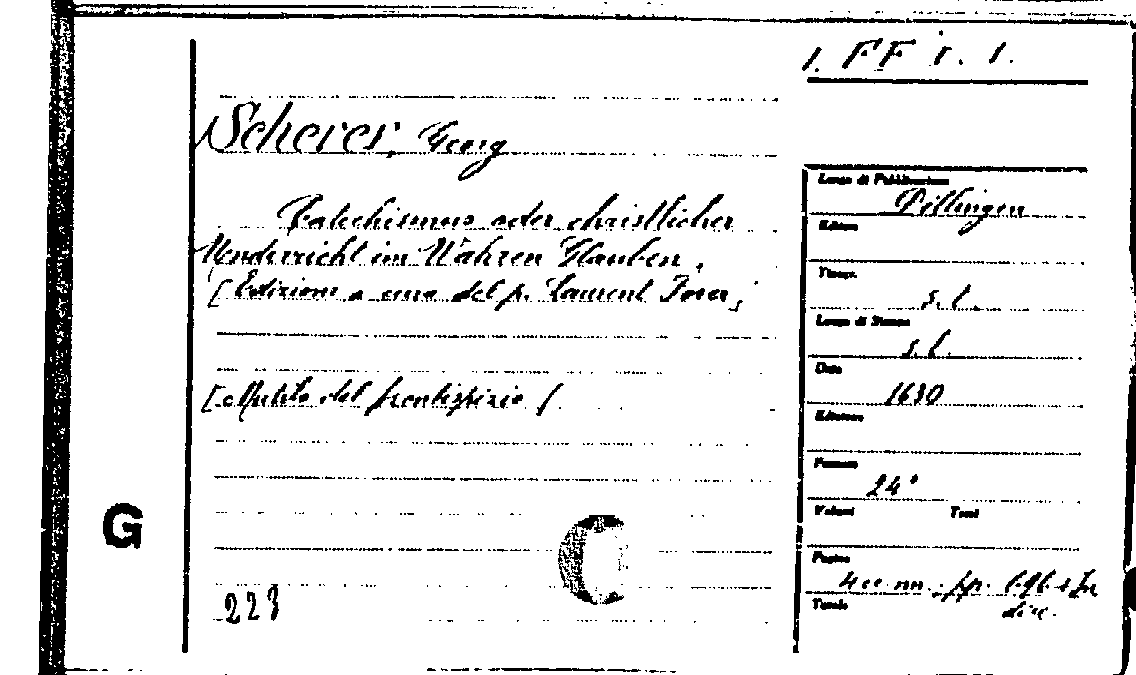 1. FF i. 1.
Scherer, Georg
Catechismus oder christlicher
Underricht im Wahren Glauben.
[Edizione a cura del p. Laurent Forer]
[Mutilo del frontispizio]
G
223
Luogo di Pubblicazione
Dillingen
Editore
Tipogr.
s. t.
Luogo di Stampa
s. l.
Data
1630
Edizione
Formato
24°
Volumi Tomi
Pagine
4 cc. nn. pp.
Tavole